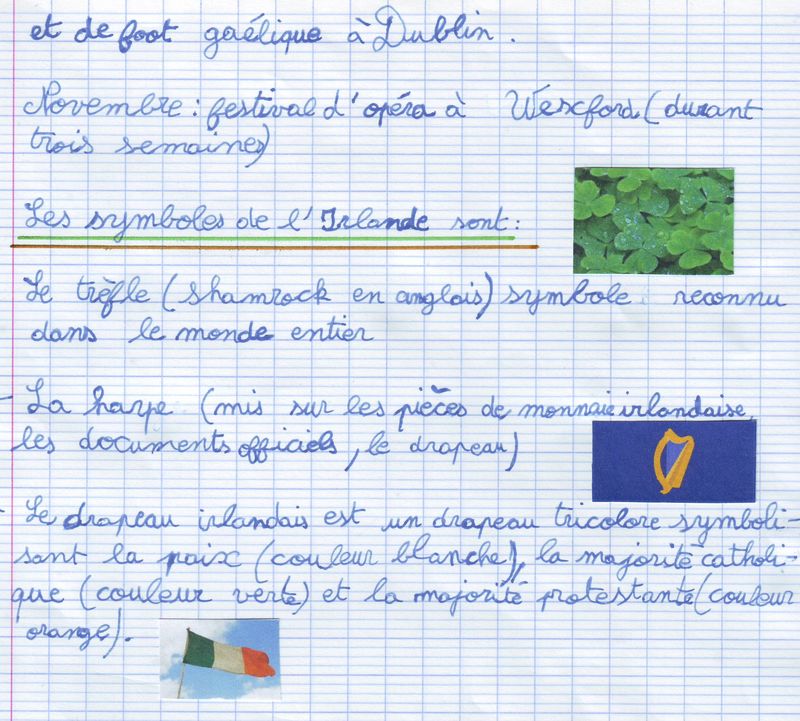 et de foot gaélique à Dublin.
Novembre : festival d'opéra à Wexford (durant
trois semaines)
Les symboles de l'Irlande sont :
Le trèfle (shamrock en anglais) symbole reconnu
dans le monde entier
- La harpe (mis sur les pièces de monnaie irlandaise,
les documents officiels, le drapeau)
- Le drapeau irlandais est un drapeau tricolore symboli-
sant la paix (couleur blanche), la majorité catholi-
que (couleur verte) et la majorité protestante (couleur
orange).